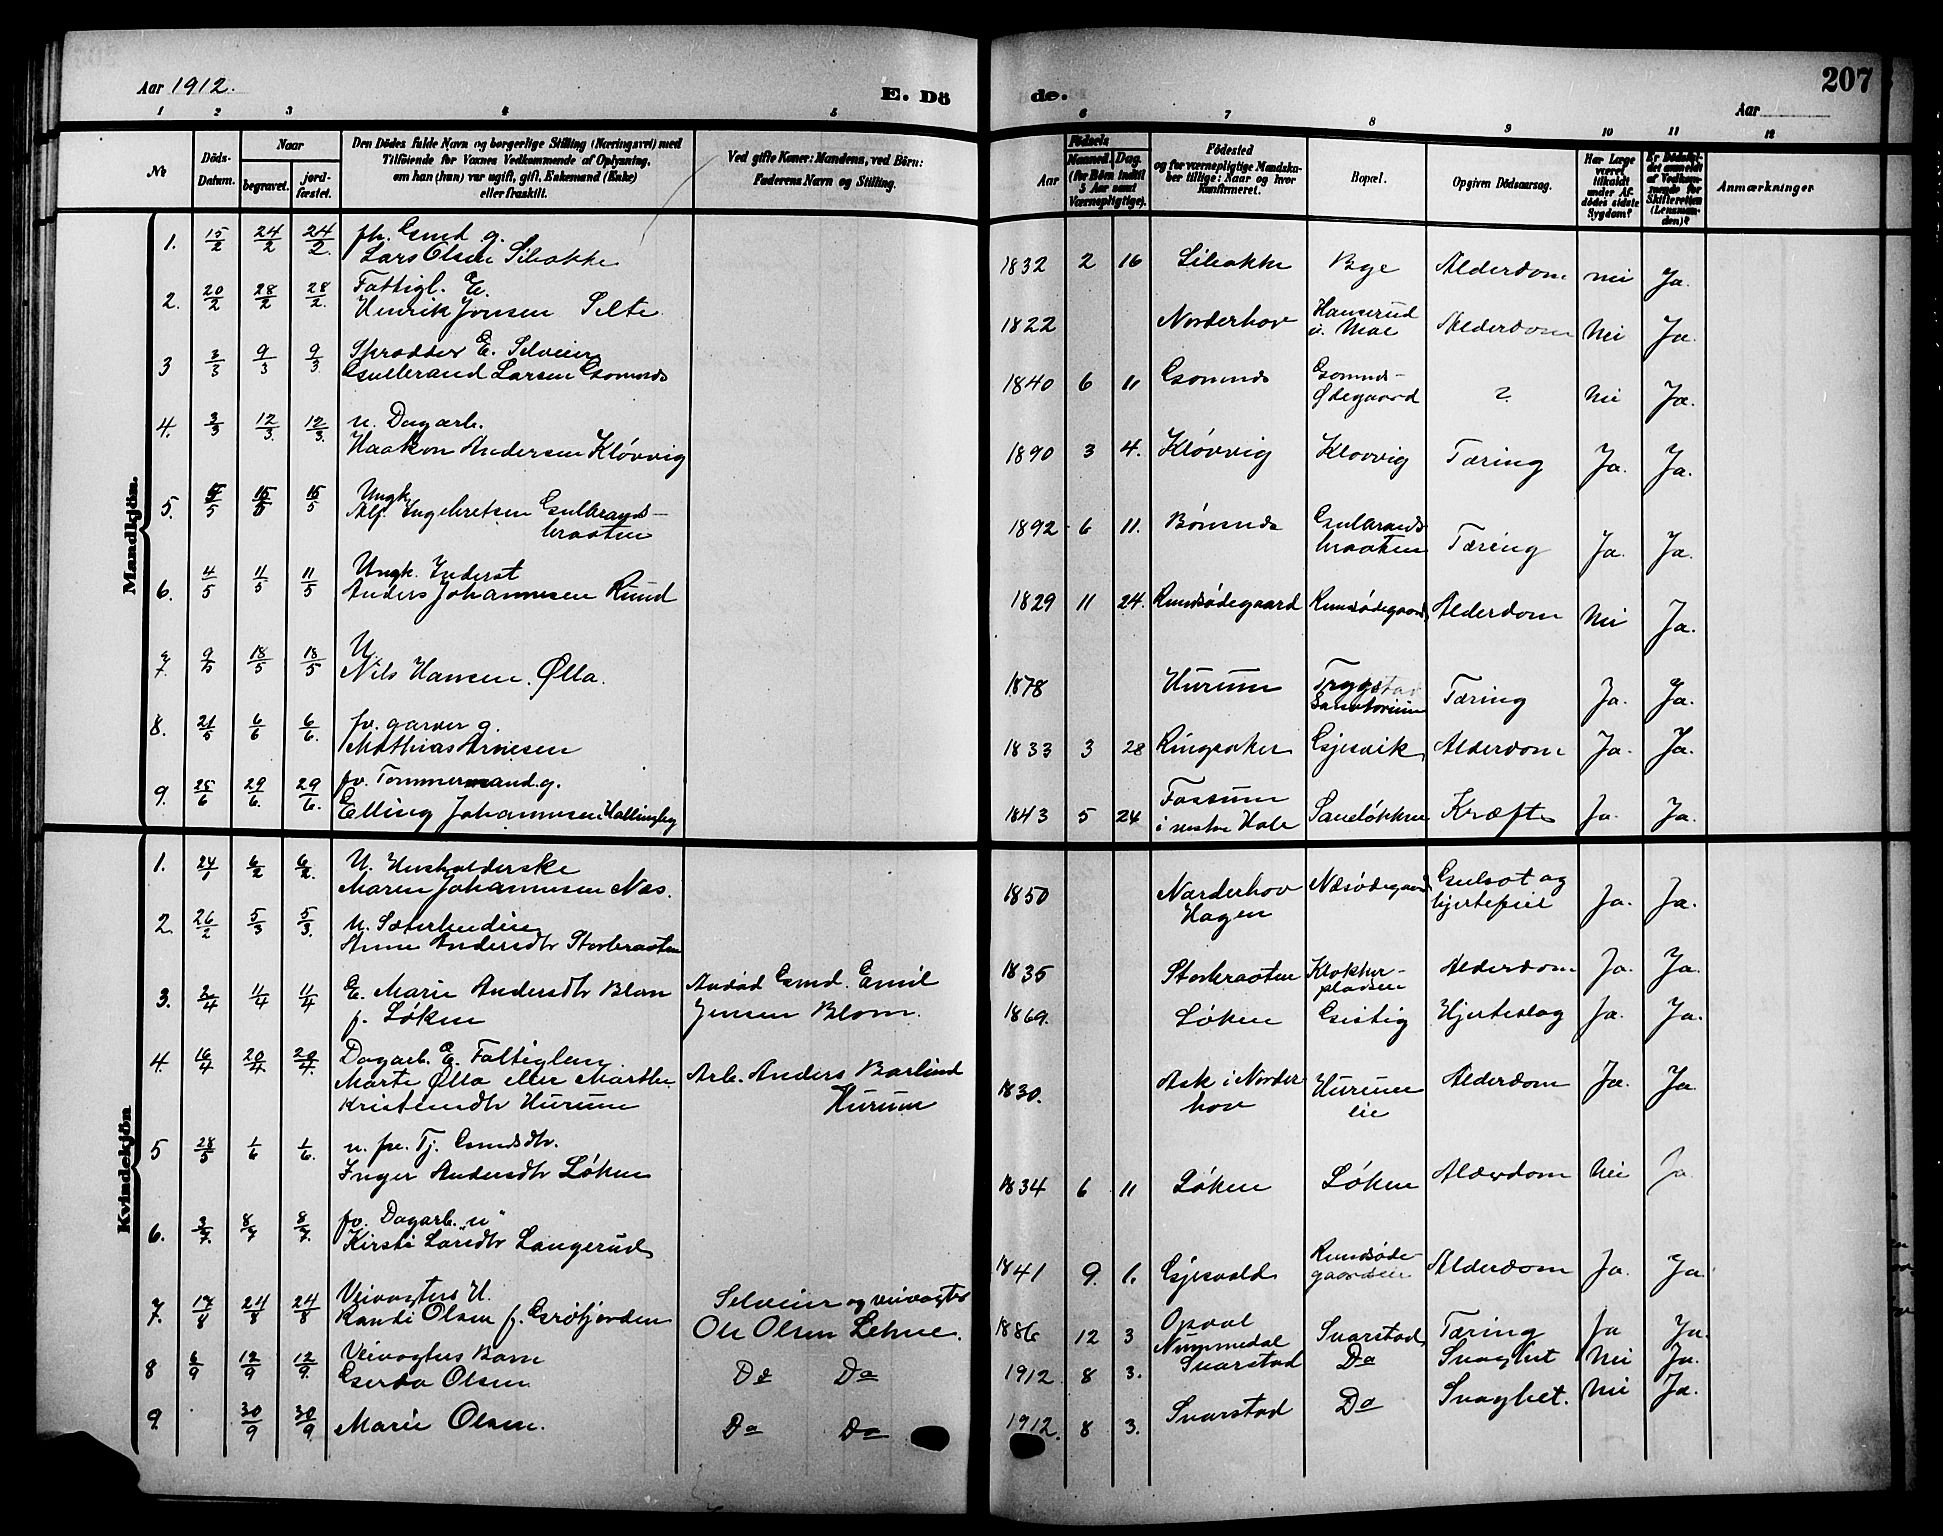 Aar 1912.
E. Dö
de.
207
Aar
1 2 3 4 5 6 7 8 9 10 11 12
No
Döds-Datum.
Naar
begravet.
jord-fæstet.
Den Dödes fulde Navn og borgerlige Stilling (Næringsvei) med
Tilföiende for Voxnes Vedkommende af Oplysning,
om han (hun) var ugift, gift, Enkemand (Enke)
eller fraskilt.
Ved gifte Koner: Mandens, ved Börn:
Faderens Navn og Stilling.
Födsels
Aar
Maaned. Dag.
(for Börn indtil
5 Aar samt
Værnepligtige).
Födested
og for værnepligtige Mandska-
ber tillige: Naar og hvor
konfirmeret.
Bopæl.
Opgiven Dödsaarsag.
Har Læge
været
tilkaldt
under Af-
dödes sidste
Sygdom?
Er Dödsfal-
det anmeldt
af Vedkom-
mende for
Skifteretten
(Lensman-
den)?
Anmærkninger
Mandkjön.
1. 15/2 24/2 24/2. fh. Gmd g.
Lars Olsen Libakke 1832 2 16 Libakke Bye Alderdom nei Ja.
2. 20/2 28/2 28/2. Fattigl. E.
Henrik Jonsen Selte 1822 Norderhov Hanserud u. Moe Alderdom Nei Ja.
3 3/3 9/3 9/3. Skrædder E. Selveier
Gulbrand Larsen Gomnæs 1840 6 11 Gomnæs Gomnæs-Ødegaard ? Nei Ja.
4. 3/3 12/3. 12/3. u. Dagarb.
Haakon Andersen Kløvvig 1890 3 4. Kløvvig Klovvig Tæring Ja. Ja.
5. 15/5 15/5 Ungk.
Alf Ingebretsen Gulbrands-
braaten 1892 6 11. Bönsnæs Gulbrands braaten Tæring Ja. Ja.
6. 4/5 11/5 11/5 Ungk. Inderst
Anders Johannesen Rund 1829 11 24. Rundsødegaard Rundsødegaard Alderdom Nei Ja.
7. 9/5 18/5 18/5 U.
Nils Hansen Ølla. 1878 Hurum Trygstad Sanatorium Tæring Ja. Ja.
8. 21/5 6/6 6/6. fv. garver g.
Mathias Arnesen 1833 3 28 Ringsaker Gjesvik Alderdom Ja. Ja.
9. 25/6 29/6. 29/6. fv. Tømmermand. g.
Elling Johannesen Hallingby 1843 5 24 Fossum i nestre Hole Sandløkken Kræft Ja. Ja.
Kvindekjön
1. 24/1 6/2 6/2. U. Husholderske
Maren Johannesen Næs. 1850 Norderhov Hagen Næsødegaard Gulsot og hjertefeil Ja. Ja.
2. 26/2 5/3 5/3. U. Sæterbudeie
Anne Andersdtr Storbraaten 1835 Storbraaten Klokker-pladsen Alderdom Ja. Ja.
3. 2/4 11/4 11/4 E. Marie Andersdtr Blom
f. Løken Avdød Gmd. Emil
Jensen Blom. 1869. Løken Gistig Hjerteslag Ja. Ja.
4. 16/4 20/4 20/4. Dagarb. E. Fattiglem
Marte Ølla eller Marthe
Kristensdtr Hurum Arb. Anders Barlind
Hurum 1830. Ask i Norder hov Hurum eie Alderdom Ja. Ja
5 28/5 1/6 1/6. u. fv. Tj. Gmdsdtr.
Inger Andersdtr Løken 1834 6 11 Løken Løken Alderdom Nei Ja
6. 3/7. 8/7 8/7. fv. Dagarb. "u"
Kirsti Larsdtr Langerud 1841 9. 1. Gjesvold Rundsøde-gaardeie Alderdom Ja. Ja.
7. 17/8 24/8 24/8 Veivogters H.
Randi Olsen f. Grøtjorden Selveier og veivogter
Ole Olsen Lehne. 1886 12 3 Opdal Nummedal Svarstad Tæring Ja Ja.
8 6/9 12/9 12/9. Veivogters Barn
Gerda Olsen Do Do 1912. 8 3. Svarstad Do Svaghet Nei Ja.
9. 30/9 30/9. Marie Olsen. Do Do 1912. 8 3. Svarstad Do Svaghet. Nei Ja.